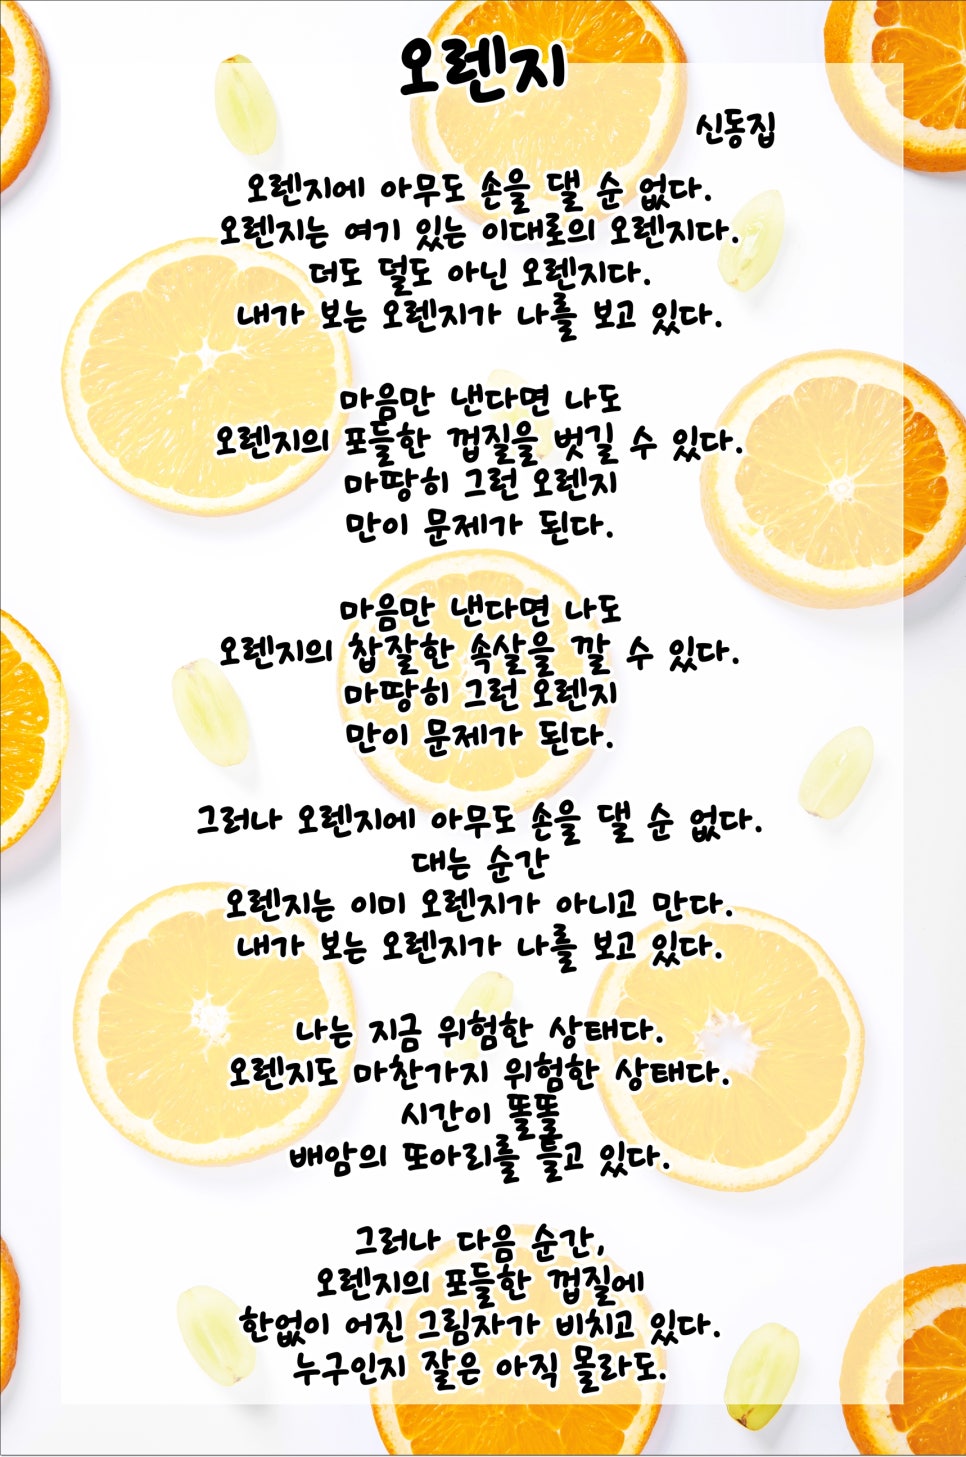 오렌지
신동집
오렌지에 아무도 손을 댈 순 없다.
오렌지는 여기 있는 이대로의 오렌지다.
더도 덜도 아닌 오렌지다.
내가 보는 오렌지가 나를 보고 있다.
마음만 낸다면 나도
오렌지의 포들한 껍질을 벗길 수 있다.
마땅히 그런 오렌지
만이 문제가 된다.
마음만 낸다면 나도
오렌지의 찹잘한 속살을 깔 수 있다.
마땅히 그런 오렌지
만이 문제가 된다.
그러나 오렌지에 아무도 손을 댈 순 없다.
대는 순간
오렌지는 이미 오렌지가 아니고 만다.
내가 보는 오렌지가 나를 보고 있다.
나는 지금 위험한 상태다.
오렌지도 마찬가지 위험한 상태다.
시간이 똘똘
배암의 또아리를 틀고 있다.
그러나 다음 순간,
오렌지의 포들한 껍질에
한없이 어진 그림자가 비치고 있다.
누구인지 잘은 아직 몰라도.